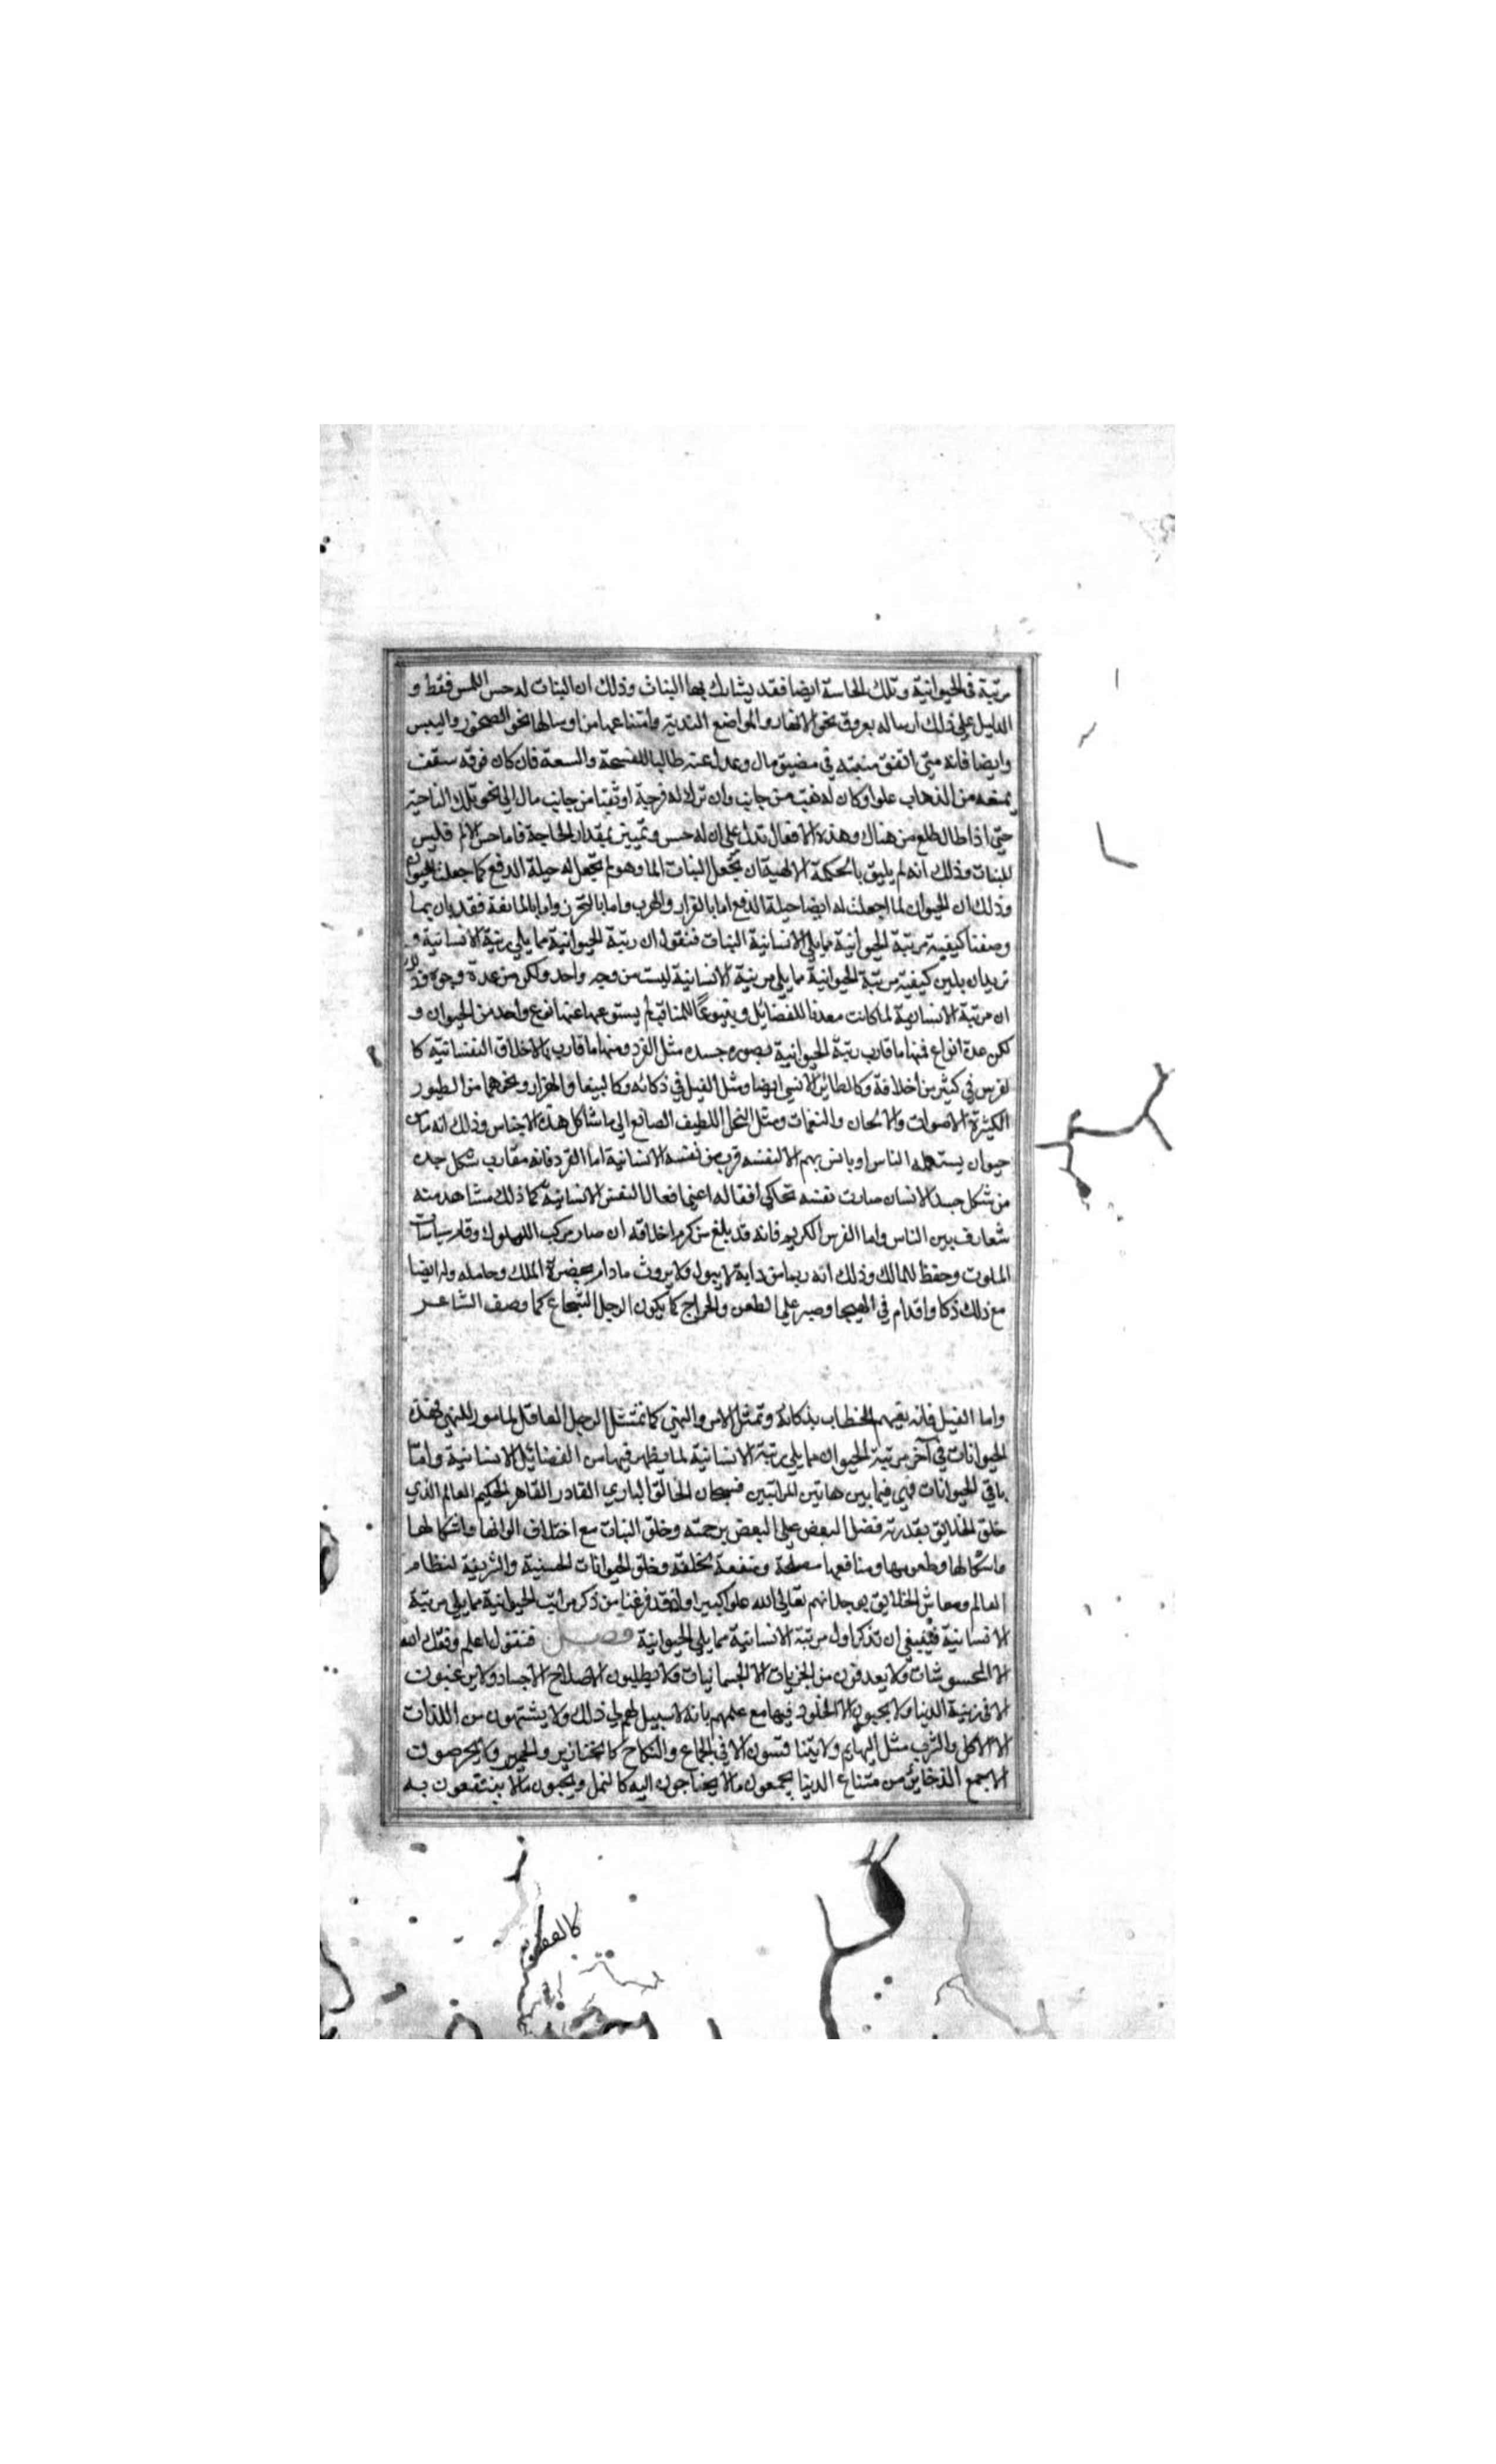 مرتبة في الحيوانية وتلك الحاسة ايضا فقد يشارك بها النبات وذلك ان النبات له حس اللمس فقط و
الدليل على ذلك ارساله بعروقه نحو الانهار والمواضع الندية وامتناعها من ارسالها نحو الصخور واليبس
وايضا فانه متى اتفق منبته في مضيق مال وعدل عنه طالبا للفسحة والسعة فان كان فوقه سقف
يمنعه من الذهاب علوا وكان له ثقب من جانب وان ترك له فرجة او ثقبا من جانب مال الى نحو تلك الناحية
حتى اذا طال طلع من هناك وهذه الافعال تدل على ان له حس وتمييز بمقدار الحاجة فاما حس الالم فليس
للنبات وذلك انه لم يليق بالحكمة الالهية ان تجعل للنبات الما وهو لم تجعل له حيلة الدفع كما جعلت للحيوان
وذلك ان الحيوان لما جعلت له ايضا حيلة الدفع اما بالفرار والهرب واما بالتحرز واما بالممانعة فقد بان بما
وصفنا كيفية مرتبة الحيوانية مما يلي الانسانية النبات فنقول ان رتبة الحيوانية مما يلي رتبة الانسانية و
نريد ان نبين كيفية مرتبة الحيوانية مما يلي مرتبة الانسانية ليست من وجه واحد ولكن من عدة وجوه وذلك
ان مرتبة الانسانية لما كانت معدنا للفضائل وينبوعا للمناقب لم يستوعبها عنها نوع واحد من الحيوان و
لكن عدة انواع فمنها ما قارب رتبة الحيوانية بصورة جسده مثل القرد ومنها ما قارب بالاخلاق النفسانية كا
لفرس في كثير من اخلاقه وكالطائر الانسي ايضا ومثل الفيل في ذكائه وكالببغا والهزار ونحوهما من الطيور
الكثيرة الاصوات والالحان والنغمات ومثل النحل اللطيف الصانع الى ما شاكل هذه الاجناس وذلك انه ما من
حيوان يستعمله الناس او يانس بهم الا لنفسه قرب من نفسه الانسانية اما القرد فانه مقارب شكل جسده
من شكل جسد الانسان صارت نفسه تحاكي افعاله اعني افعال النفس الانسانية كما ذلك مشاهد منه
متعارف بين الناس واما الفرس الكريم فانه قد بلغ من كرم اخلاقه ان صار مركب الملوك وقاد سياسات
الملوك وحفظ للمالك وذلك انه ربما من دابة لا يبول ولا يروث ما دام بحضرة الملك وحامله وله ايضا
مع ذلك ذكا واقدام في الهيجا وصبر على الطعن والجراح كما يكون الرجل الشجاع كما وصف الشاعر
واما الفيل فانه يفهم الخطاب بذكائه وتمثل الامر والنهي كما تمتثل الرجل العاقل المامور للنهي فهذه
الحيوانات في آخر مرتبة الحيوان مما يلي رتبة الانسانية لما يظهر فيها من الفضائل الانسانية واما
باقي الحيوانات فهي فيما بين هاتين المراتبين فسبحان الخالق الباري القادر القاهر الحكيم العالم الذي
خلق الخلايق بقدرته فضل البعض على البعض برحمته وخلق النبات مع اختلاف الوانها واشكالها
واشكالها وطعومها ومنافعها مصلحة ومنفعة لخلقه وخلق الحيوانات الحسنية والشريفة لنظام
العالم ومعاش الخلايق تعالى الله علوا كبيرا واذ قد فرغنا من ذكر مراتب الحيوانية مما يلي مرتبة
الانسانية فينبغي ان نذكر اول مرتبة الانسانية مما يلي الحيوانية فصل فنقول اعلم وفقك الله
الا المحسوسات ولا يعرفون من الخيرات الا الجسمانيات ولا يطلبون الا صلاح الاجساد ولا يرغبون
الا في زينة الدنيا ولا يحبون الا الخلود فيها مع علمهم بانه لا سبيل لهم الى ذلك ولا يشتهون من اللذات
الا الاكل والشرب مثل البهايم ولا يتنافسون الا في الجماع والنكاح كالخنازير والحمير ولا يحرصون
الا جمع الذخائر من متناع الدنيا يجمعون ما لا يحتاجون اليه كالنمل ويحبون ما لا ينتفعون به
كالعقعق